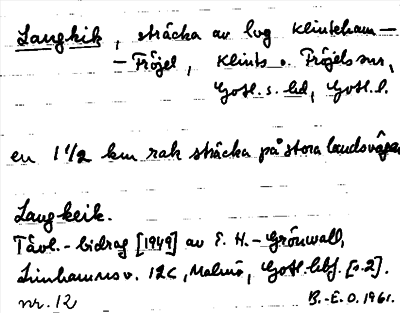 Langkik, sträcka av lvg Klintehamn—
— Fröjel, Klinte o. Fröjels snr,
Gotl. s. hd, Gotl. l.
en 1 1/2 km rak sträcka på stora landsvägen
Langkeik.
Tävl.-bidrag [1949] av E. H.-Grönwall,
Limhamnsv. 12C, Malmö, Gotl. [s.2].
nr. 12
B.-E.O. 1961.